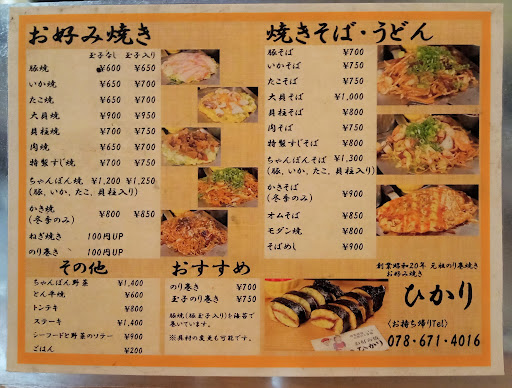 お好み焼き
玉子なし 玉子入り
豚焼 ¥600 ¥650
いか焼 ¥650 ¥700
たこ焼 ¥650 ¥700
大貝焼 ¥900 ¥950
貝柱焼 ¥700 ¥750
肉焼 ¥650 ¥700
特製すじ焼 ¥700 ¥750
ちゃんぽん焼 ¥1,200 ¥1,250
(豚、いか、たこ、貝柱入り)
かき焼 ¥800 ¥850
(冬季のみ)
ねぎ焼き 100円UP
のり巻き 100円UP
焼きそば・うどん
豚そば ¥700
いかそば ¥750
たこそば ¥750
大貝そば ¥1,000
貝柱そば ¥800
肉そば ¥750
特製すじそば ¥800
ちゃんぽんそば ¥1,300
(豚、いか、たこ、貝柱入り)
かきそば ¥900
(冬季のみ)
オムそば ¥850
モダン焼 ¥800
そばめし ¥900
その他
ちゃんぽん野菜 ¥1,400
とん平焼 ¥600
トンテキ ¥800
ステーキ ¥1,400
シーフードと野菜のソテー ¥900
ごはん ¥200
おすすめ
のり巻き ¥700
玉子のり巻き ¥750
豚焼(玉子入り)を海苔で
巻いています。
※具材の変更も可能です。
創業昭和20年 元祖のり巻焼き
お好み焼き
ひかり
(お持ち帰りTel)
078-671-4016